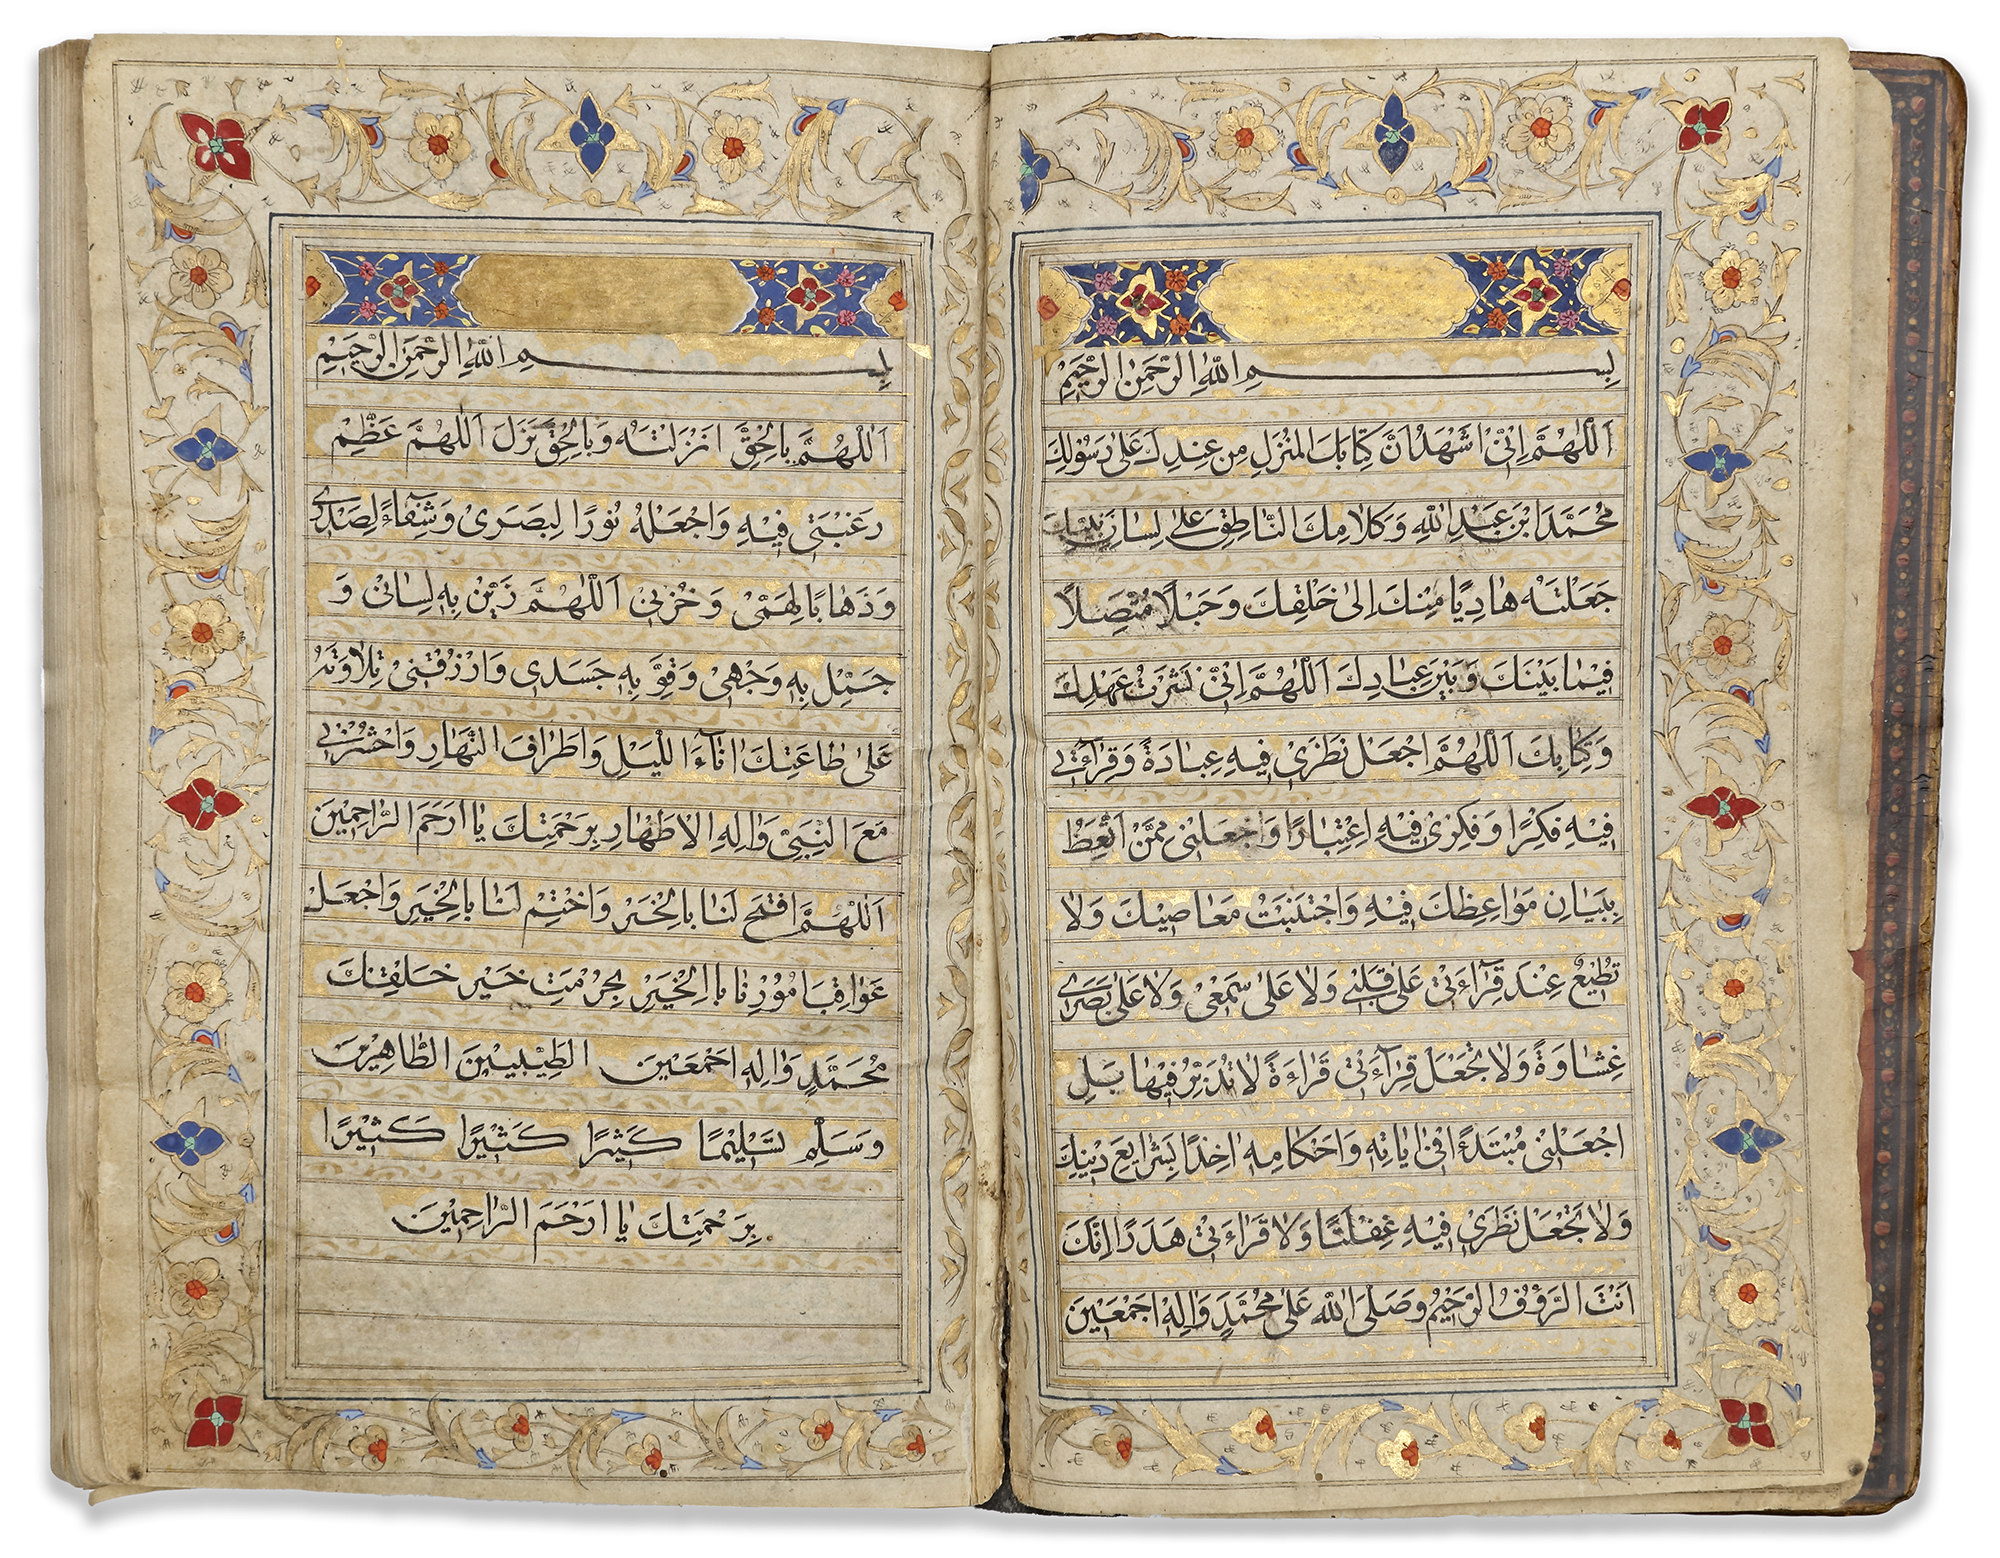 بِسْمِ اللّٰهِ الرَّحْمٰنِ الرَّحِيْمِ
اَللّٰهُمَّ اِنّٰى اَشْهَدُ اَنَّ كِتَابَكَ الْمُنْزَلِ مِنْ عِنْدِكَ عَلٰى رَسُوْلِكَ
مُحَمَّدَ ابْنِ عَبْدِ اللّٰهِ وَكَلَامِكَ النَّاطِقِ عَلٰى لِسَانِ نَبِيِّكَ
جَعَلْتَهُ هَادِيًا مِنْكَ اِلٰى خَلْقِكَ وَحَبْلًا مُتَّصِلًا
فِيْمَا بَيْنَكَ وَبَيْنَ عِبَادِكَ اَللّٰهُمَّ اِنّٰى نَشَرْتُ عَهْدَكَ
وَكِتَابِكَ اَللّٰهُمَّ اجْعَلْ نَظَرِىْ فِيْهِ عِبَادَةً وَقِرَاءَتِىْ
فِيْهِ فِكْرًا وَفِكْرِىْ فِيْهِ اِعْتِبَارًا وَاجْعَلْنِىْ مِمَّنْ اتَّعَظَ
بِبَيَانِ مَوَاعِظِكَ فِيْهِ وَاجْتَنَبَتْ مَعَاصِيْكَ وَلَا
تَطْبَعْ عِنْدَ قِرَاءَتِىْ عَلٰى قَلْبِىْ وَلَا عَلٰى سَمْعِىْ وَلَا عَلٰى بَصَرِىْ
غِشَاوَةً وَلَا تَجْعَلْ قِرَاءَتِىْ قَرَاءَةً لَا تَدَبُّرَ فِيْهَا بَلِ
اجْعَلْنِىْ مُبْتَدَءً ا فِىْ اٰيَاتِهِ وَاَحْكَامِهِ اٰخِذًا بِشَرَايِعِ دِيْنِكَ
وَلَا تَجْعَلْ نَظَرِىْ فِيْهِ غَفْلَتًا وَلَا قَرَاءَتِىْ هَدَرًا اِنَّكَ
اَنْتَ الرَّؤُفُ الرَّحِيْمُ وَصَلَّى اللّٰهُ عَلٰى مُحَمَّدٍ وَاٰلِهِ اَجْمَعَيْنَ
بِسْمِ اللّٰهِ الرَّحْمٰنِ الرَّحِيْمِ
اَللّٰهُمَّ بِالْحَقِّ اَنْزَلْتَهُ وَبِالْحَقِّ نَزَلَ اَللّٰهُمَّ عَظِّمْ
رَغْبَتِىْ فِيْهِ وَاجْعَلْهُ نُوْرًا لِبَصَرِىْ وَشِفَاءً لِصَدْرِىْ
وَذَهَابًا لِهَمِّىْ وَحُزْنِىْ اَللّٰهُمَّ زَيِّنْ بِهِ لِسَانِىْ وَ
جَمِّلْ بِهِ وَجْهِىْ وَقَوِّ بِهِ جَسَدِىْ وَارْزُقْنِىْ تِلَاوَتَهُ
عَلٰى طَاعَتِكَ اٰنَاءَ اللَّيْلِ وَاَطْرَافَ النَّهَارِ وَاحْشُرْنِىْ
مَعَ النَّبِىِّ وَاٰلِهِ الْاَطْهَارِ بِرَحْمَتِكَ يَا اَرْحَمَ الرَّاحِمِيْنَ
اَللّٰهُمَّ افْتَحْ لَنَا بِالْخَيْرِ وَاخْتِمْ لَنَا بِالْخَيْرِ وَاجْعَلْ
عَوَاقِبَ اُمُوْرِنَا بِالْخَيْرِ بِحُرْمَتِ خَيْرِ خَلْقِكَ
مُحَمَّدٍ وَاٰلِهِ اَجْمَعَيْنَ الطَّيِّبِيْنَ الطَّاهِرِيْنَ
وَسَلِّمْ تَسْلِيْمًا كَثِيْرًا كَثِيْرًا كَثِيْرًا
بِرَحْمَتِكَ يَا اَرْحَمَ الرَّاحِمِيْنَ